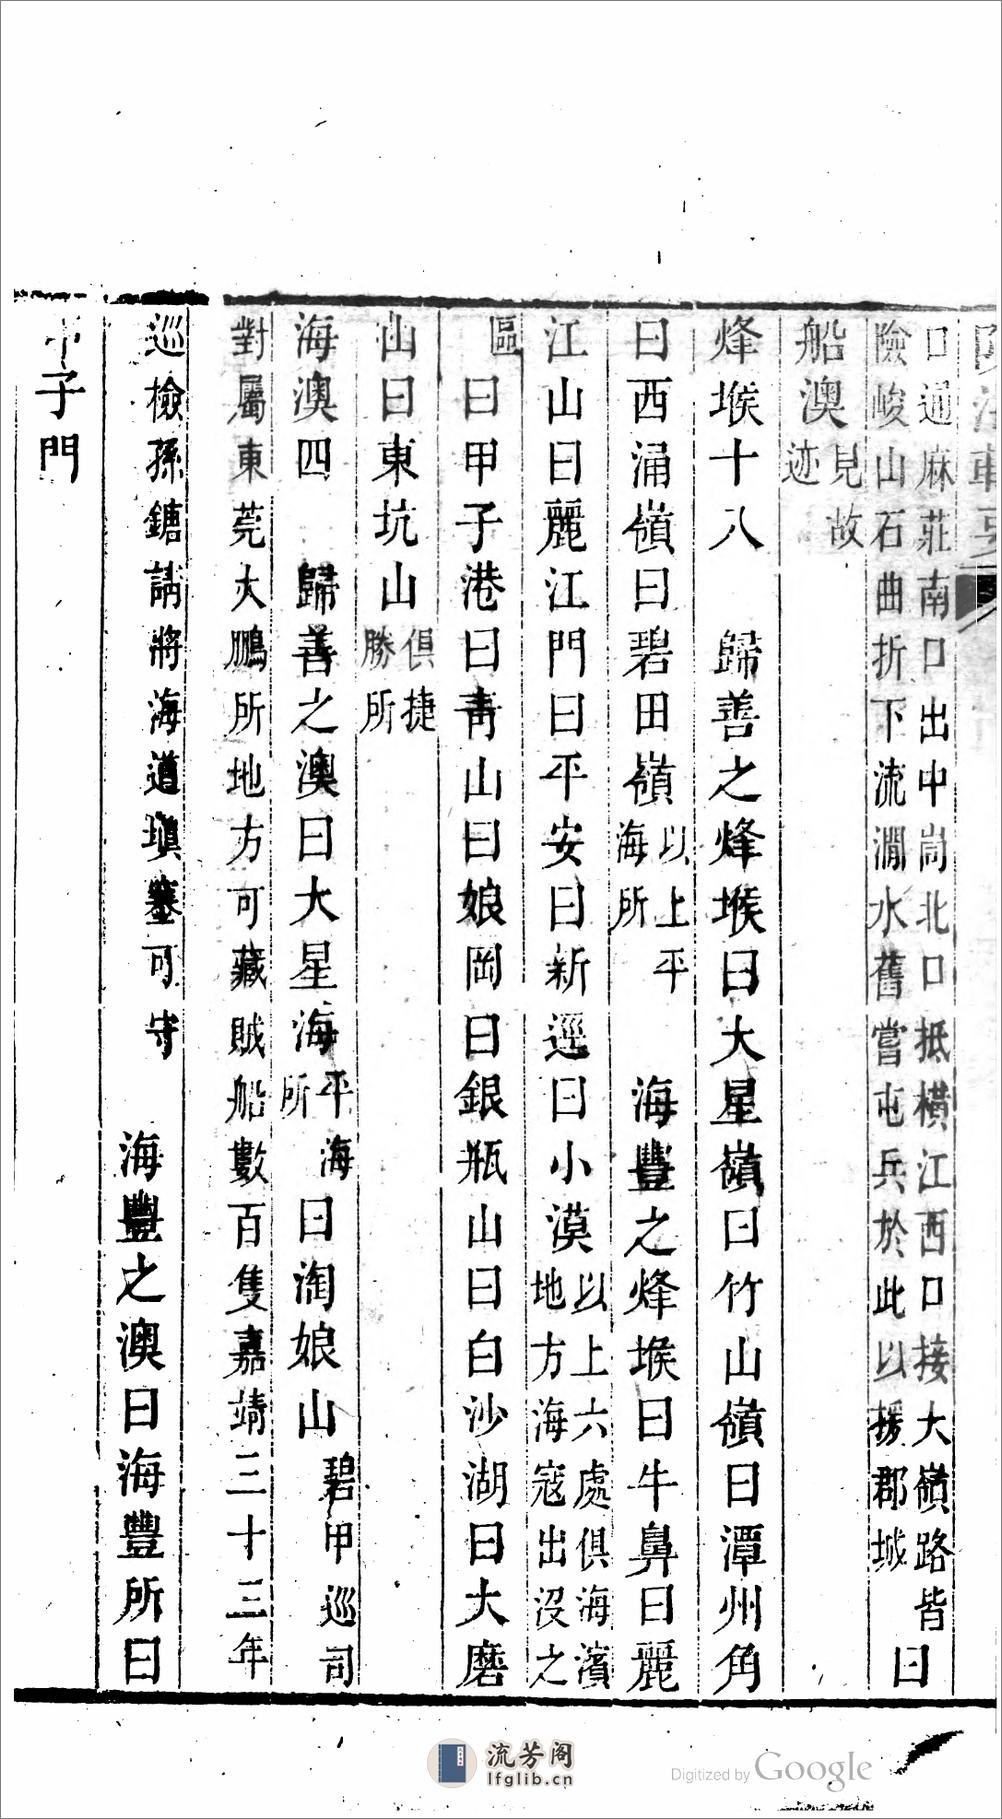 口通麻莊南口出中崗北口抵橫江西口接大嶺路皆
險峻山石曲折下流澗水舊嘗屯兵於此以援郡城
曰
船澳見故
迹
烽堠十八　歸善之烽堠曰大星嶺曰竹山嶺曰潭州角
曰西涌嶺曰碧田嶺以上平
海所
海豐之烽堠曰牛鼻曰麗
江山曰麗江門曰平安曰新逕曰小漠以上六處俱海濱
地方海寇出沒之
區
曰甲子港曰青山曰娘岡曰銀瓶山曰白沙湖曰大磨
山曰東坑山俱捷
勝所
海澳四　歸善之澳曰大星海平海
所
曰淘娘山碧甲巡司
對屬東莞大鵬所地方可藏賊船數百隻嘉靖三十三年
巡檢孫鏞請將海道填塞可守
海豐之澳曰海豐所曰
子門
流芳阁
lfglib.cn
Digitized by Google